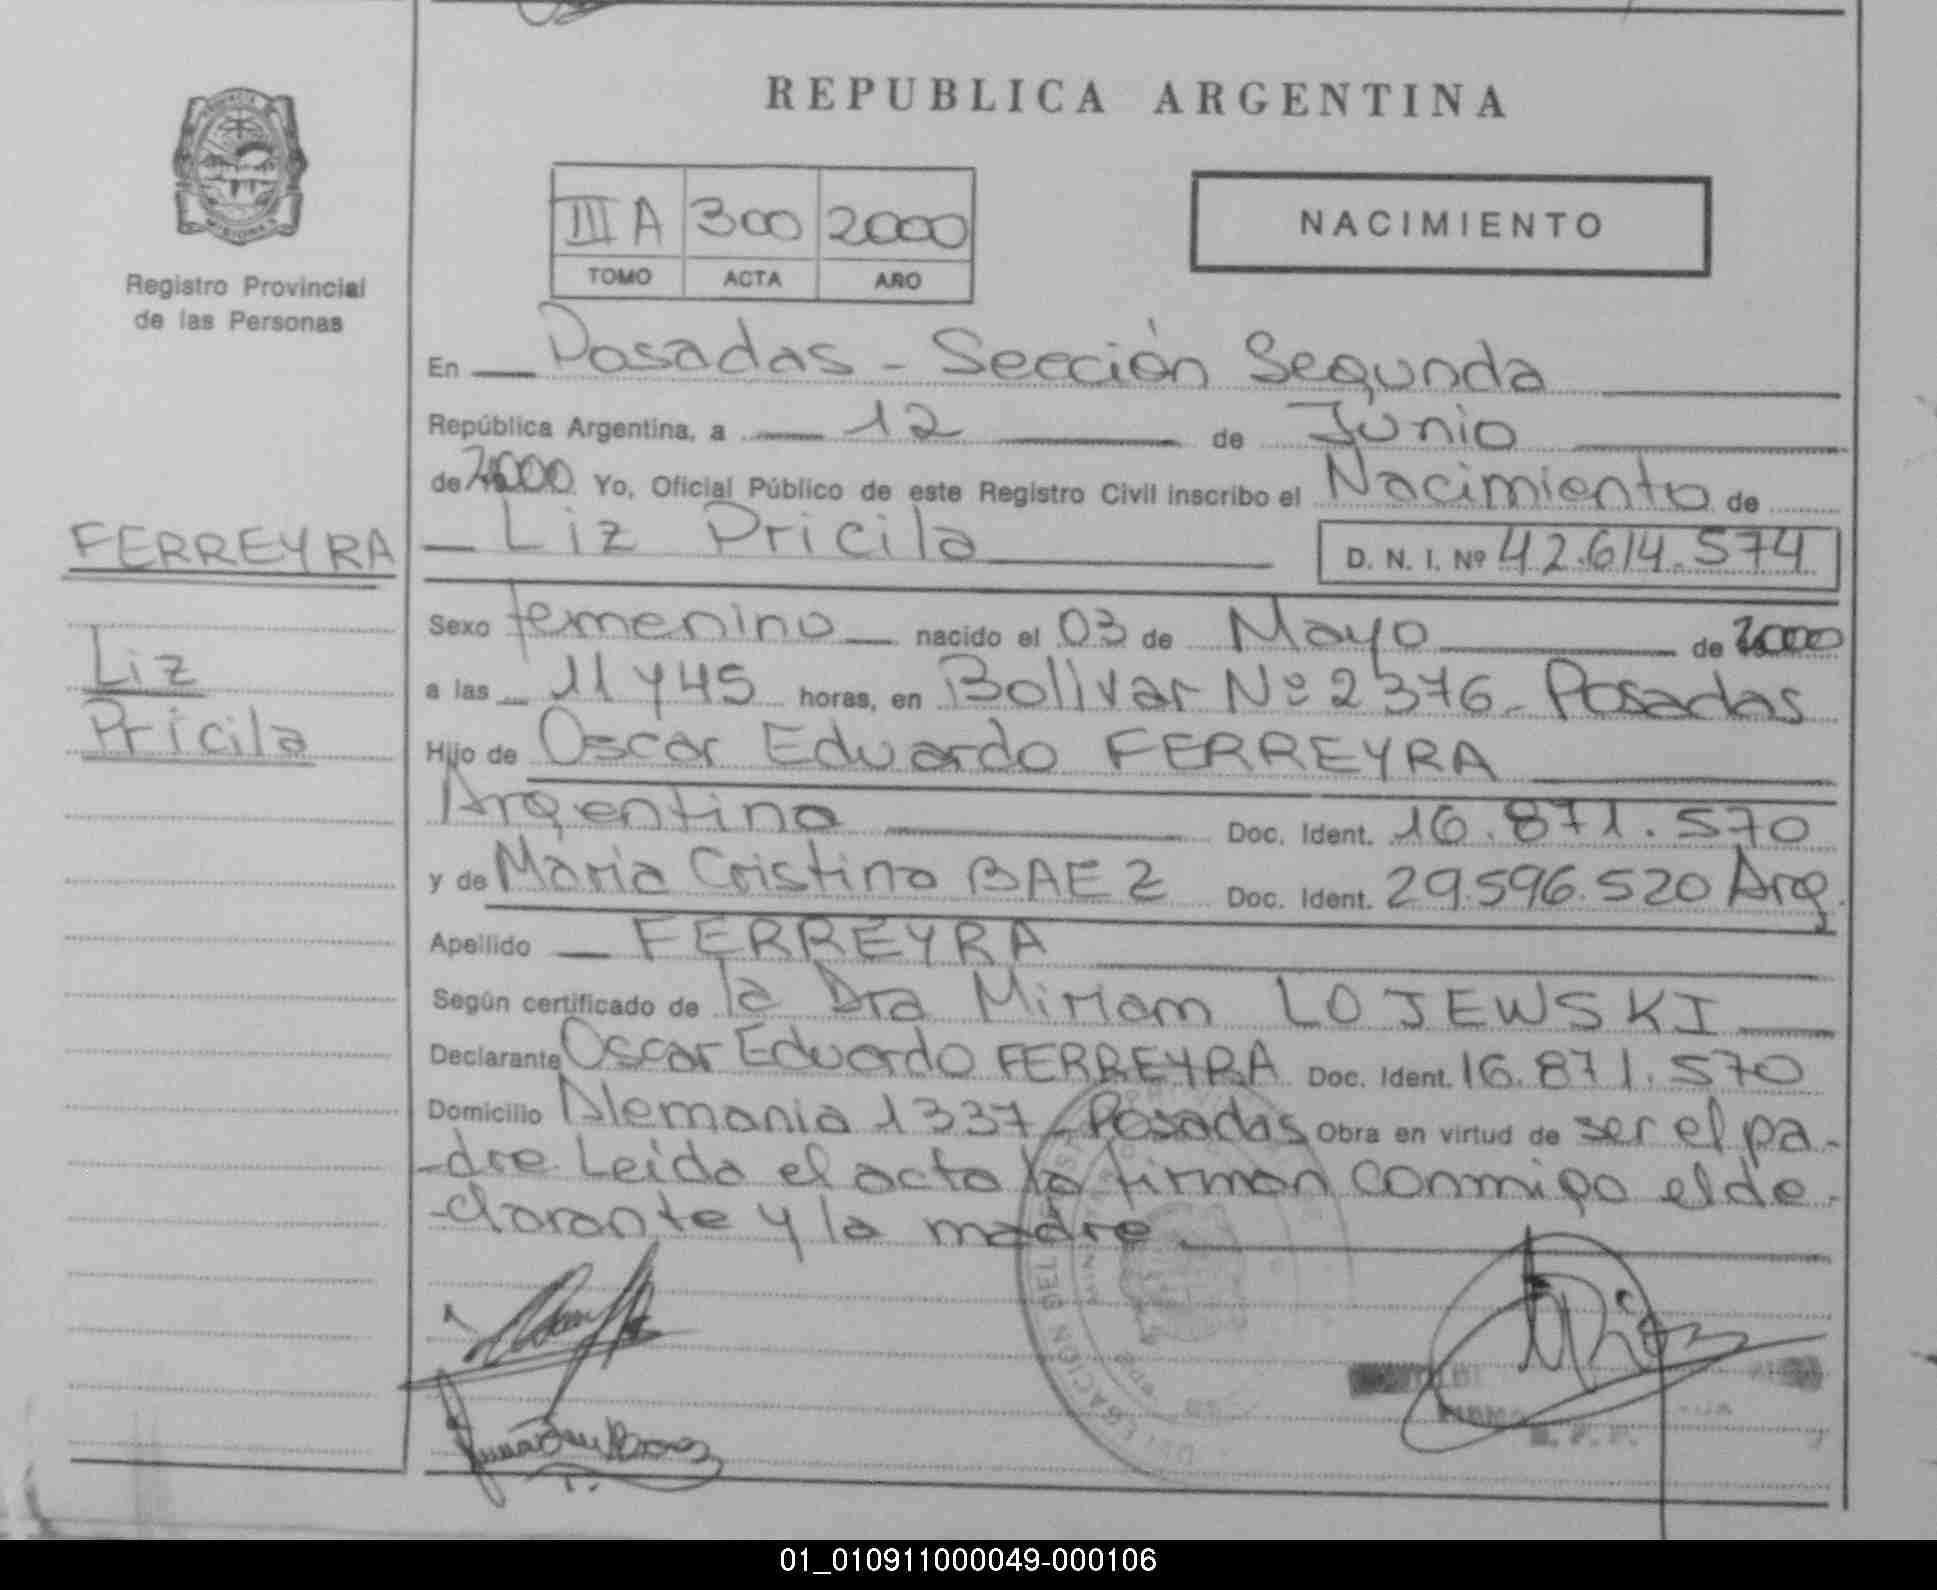 REPUBLICA ARGENTINA
III A 300 2000
TOMO ACTA AÑO
NACIMIENTO
Registro Provincial
de las Personas
En Posadas - Sección Segunda
República Argentina, a 12 de Junio
de 2000 Yo, Oficial Público de este Registro Civil inscribo el Nacimiento de
Liz Pricila
D. N. I. Nº 42.614.574
FERREYRA
Liz
Pricila
Sexo femenino nacido el 03 de Mayo de 2000
a las 11 y 45 horas, en Bolivar Nº 2376 - Posadas
Hijo de Oscar Eduardo FERREYRA
Argentino Doc. Ident. 16.871.570
y de Maria Cristina BAEZ Doc. Ident. 29.596.520 Arg.
Apellido FERREYRA
Según certificado de la Dra Miriam LOJEWSKI
Declarante Oscar Eduardo FERREYRA Doc. Ident. 16.871.570
Domicilio Alemania 1337 - Posadas Obra en virtud de ser el pa-
-dre. Leida el acta la firman conmigo el de-
-clarante y la madre
DELEGACION DEL
01_010911000049-000106